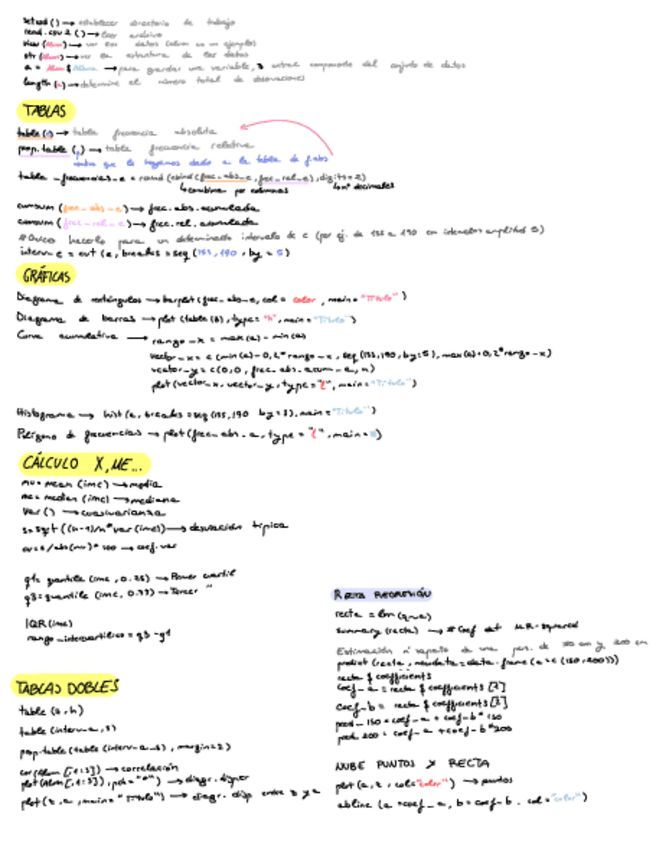 setwd () → establecer directorio de trabajo
read.csv2 () → leer archivo
view (Alum) → ver los datos (alum es un ejemplo)
str (Alum) → ver la estructura de los datos
a = Alum $ Altura → para guardar una variable, extrae componente del conjunto de datos
length (a) → determina el número total de observaciones
TABLAS
table(a) → tabla frecuencia absoluta
prop.table ( ) → tabla frecuencia relativa
nombre que le hayamos dado a la tabla de f.abs
table_frecuencias_e = round (cbind (frec_abs_e, frec_rel_e), digits=2)
↳ combina por columnas ↳ nº decimales
cumsum (frec_abs_e) → frec.abs.acumulada
cumsum (frec_rel_e) → frec.rel.acumulada
hacerlo para un determinado intervalo de c (por ej. de 155 a 190 en intervalos amplitud 5)
interv_e = cut (e, breaks = seq (155, 190, by = 5)
GRÁFICAS
Diagrama de rectángulos → barplot (frec_abs_e, col = color, main = "Título")
Diagrama de barras → plot (table (b), type = "h", main = "Título")
Curva acumulativa → rango_x = max(a) - min(a)
vector_x = c (min(a) - 0,2* rango_x, seq (155,190, by=5), max(a)+0,2* rango_x)
vector_y = c (0,0, frec_abs_acum_a, n)
plot (vector_x, vector_y, type = "l", main = "Título")
Histograma → hist (a, breaks = seq (155,190 by=5), main = "Título")
Polígono de frecuencias → plot (frec_abs_a, type = "l", main = )
CÁLCULO X, ME...
mu = mean (imc) → media
me = median (imc) → mediana
var () → cuasivarianza
s = sqrt ((n-1)/n* var (imc)) → desviación típica
cv = s / abs(mu) * 100 → coef. var
q1 = quantile (imc, 0.25) → Primer cuartil
q3 = quantile (imc, 0.75) → Tercer "
IQR (imc)
rango_intercuartílico = q3 - q1
TABLAS DOBLES
table (a, h)
table (interv_a, s)
prop.table (table (interv_a_s), margin=2)
cor (Alum [,1:3]) → correlación
plot (Alum [,1:3]), pch = "*") → diagr. disper
plot (t, a, main = "Título") → diagr. disp entre y a
RECTA REGRESIÓN
recta = lm (y~a)
summary (recta) → # Coef det M.R-squared
Estimación respecto de una pers. de 150 cm y 200 cm
predict (recta, newdata = data.frame (a = c (150,200)))
recta $ coefficients
coef_a = recta $ coefficients [1]
coef_b = recta $ coefficients [2]
pred_150 = coef_a + coef_b * 150
pred_200 = coef_a + coef_b * 200
NUBE PUNTOS Y RECTA
plot (a, t, col="color") → puntos
abline (a = coef_a, b = coef_b, col = "color")